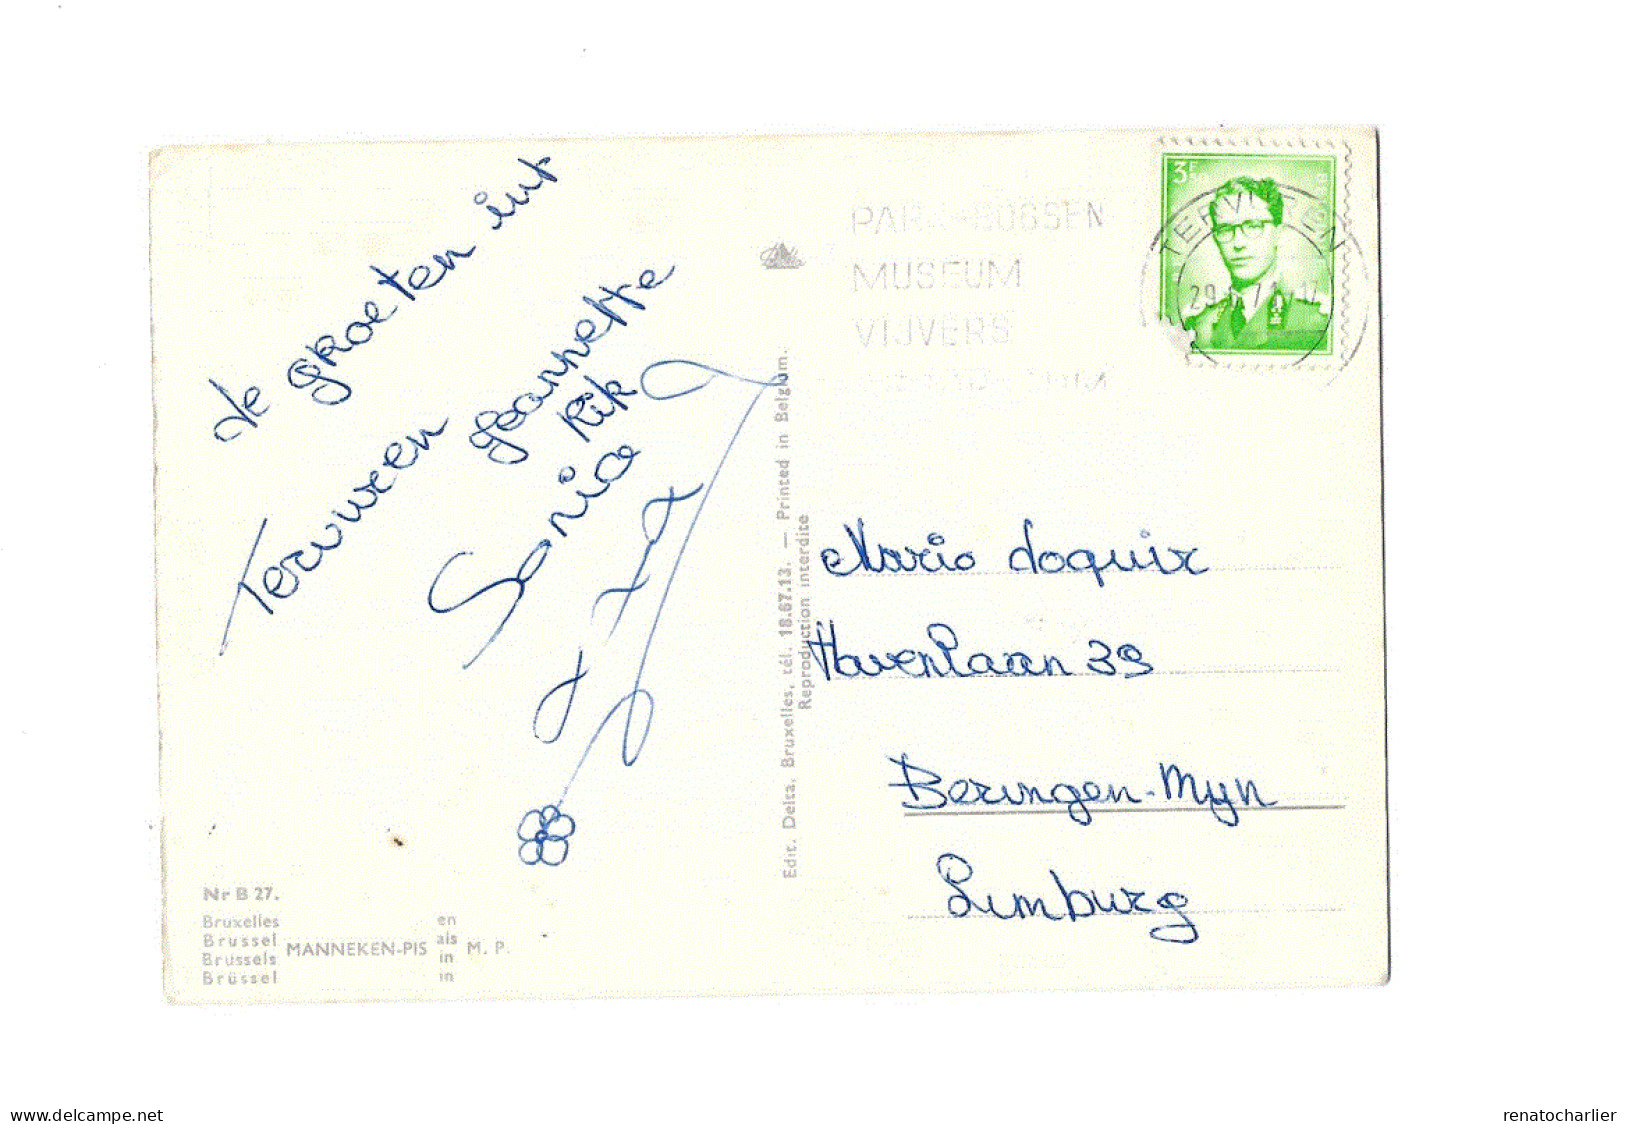 de groeten uit
Tervuren
Jeannette
Rik
Sonia
Mario Loquix
Havenlaan 39
Beringen-Myn
Limburg
Edit. Delta. Bruxelles, tél. 18.67.13. — Printed in Belgium.
Reproduction interdite
PARK-BOSSEN
MUSEUM
VIJVERS
3F50
TERVUREN
Nr B 27.
Bruxelles
Brussel
Brussels
Brüssel
MANNEKEN-PIS
en
als
in
in
M. P.
www.delcampe.net
renatocharlier